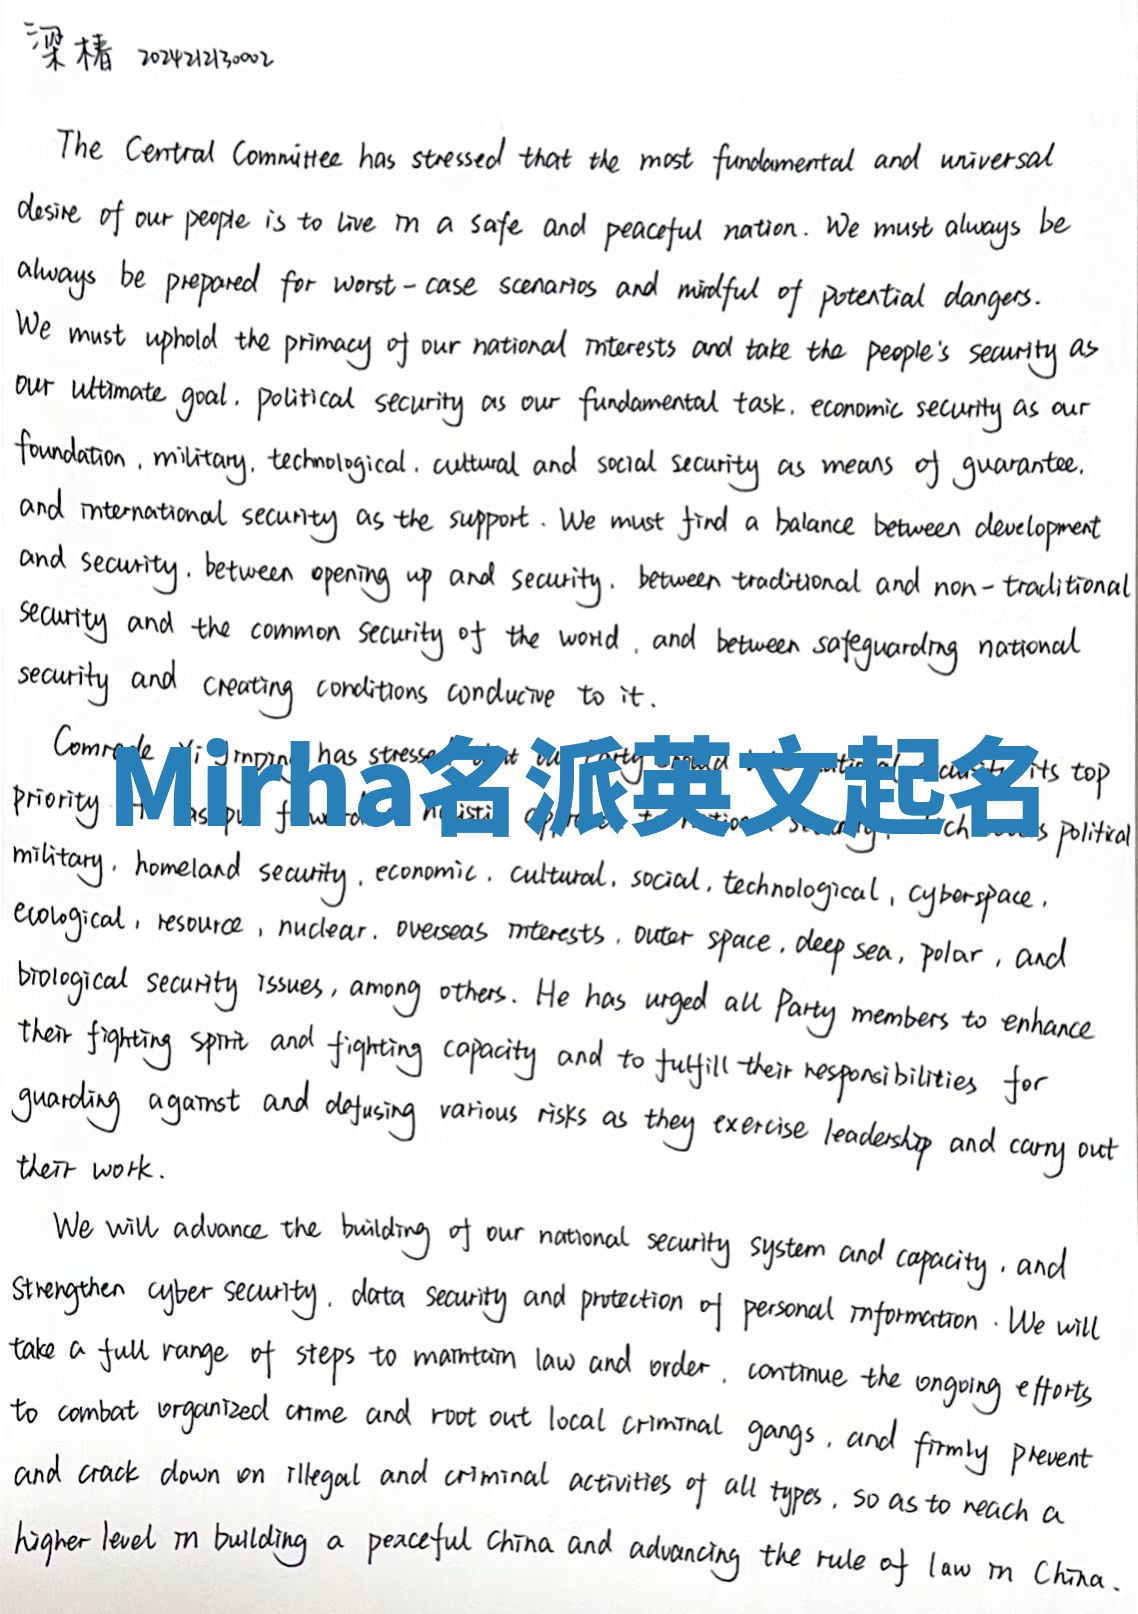 梁椿 2024212130002
The Central Committee has stressed that the most fundamental and universal
desire of our people is to live in a safe and peaceful nation. We must always be
always be prepared for worst-case scenarios and mindful of potential dangers.
We must uphold the primacy of our national interests and take the people's security as
our ultimate goal, political security as our fundamental task, economic security as our
foundation, military, technological, cultural and social security as means of guarantee,
and international security as the support. We must find a balance between development
and security, between opening up and security, between traditional and non-traditional
security and the common security of the world, and between safeguarding national
security and creating conditions conducive to it.
Comrade Xi Jinping has stressed its top
Mirha名派英文起名
priority political
military, homeland security, economic, cultural, social, technological, cyberspace,
ecological, resource, nuclear, overseas interests, outer space, deep sea, polar, and
biological security issues, among others. He has urged all Party members to enhance
their fighting spirit and fighting capacity and to fulfill their responsibilities for
guarding against and defusing various risks as they exercise leadership and carry out
their work.
We will advance the building of our national security system and capacity, and
strengthen cyber security, data security and protection of personal information. We will
take a full range of steps to maintain law and order, continue the ongoing efforts
to combat organized crime and root out local criminal gangs, and firmly prevent
and crack down on illegal and criminal activities of all types, so as to reach a
higher level in building a peaceful China and advancing the rule of law in China.